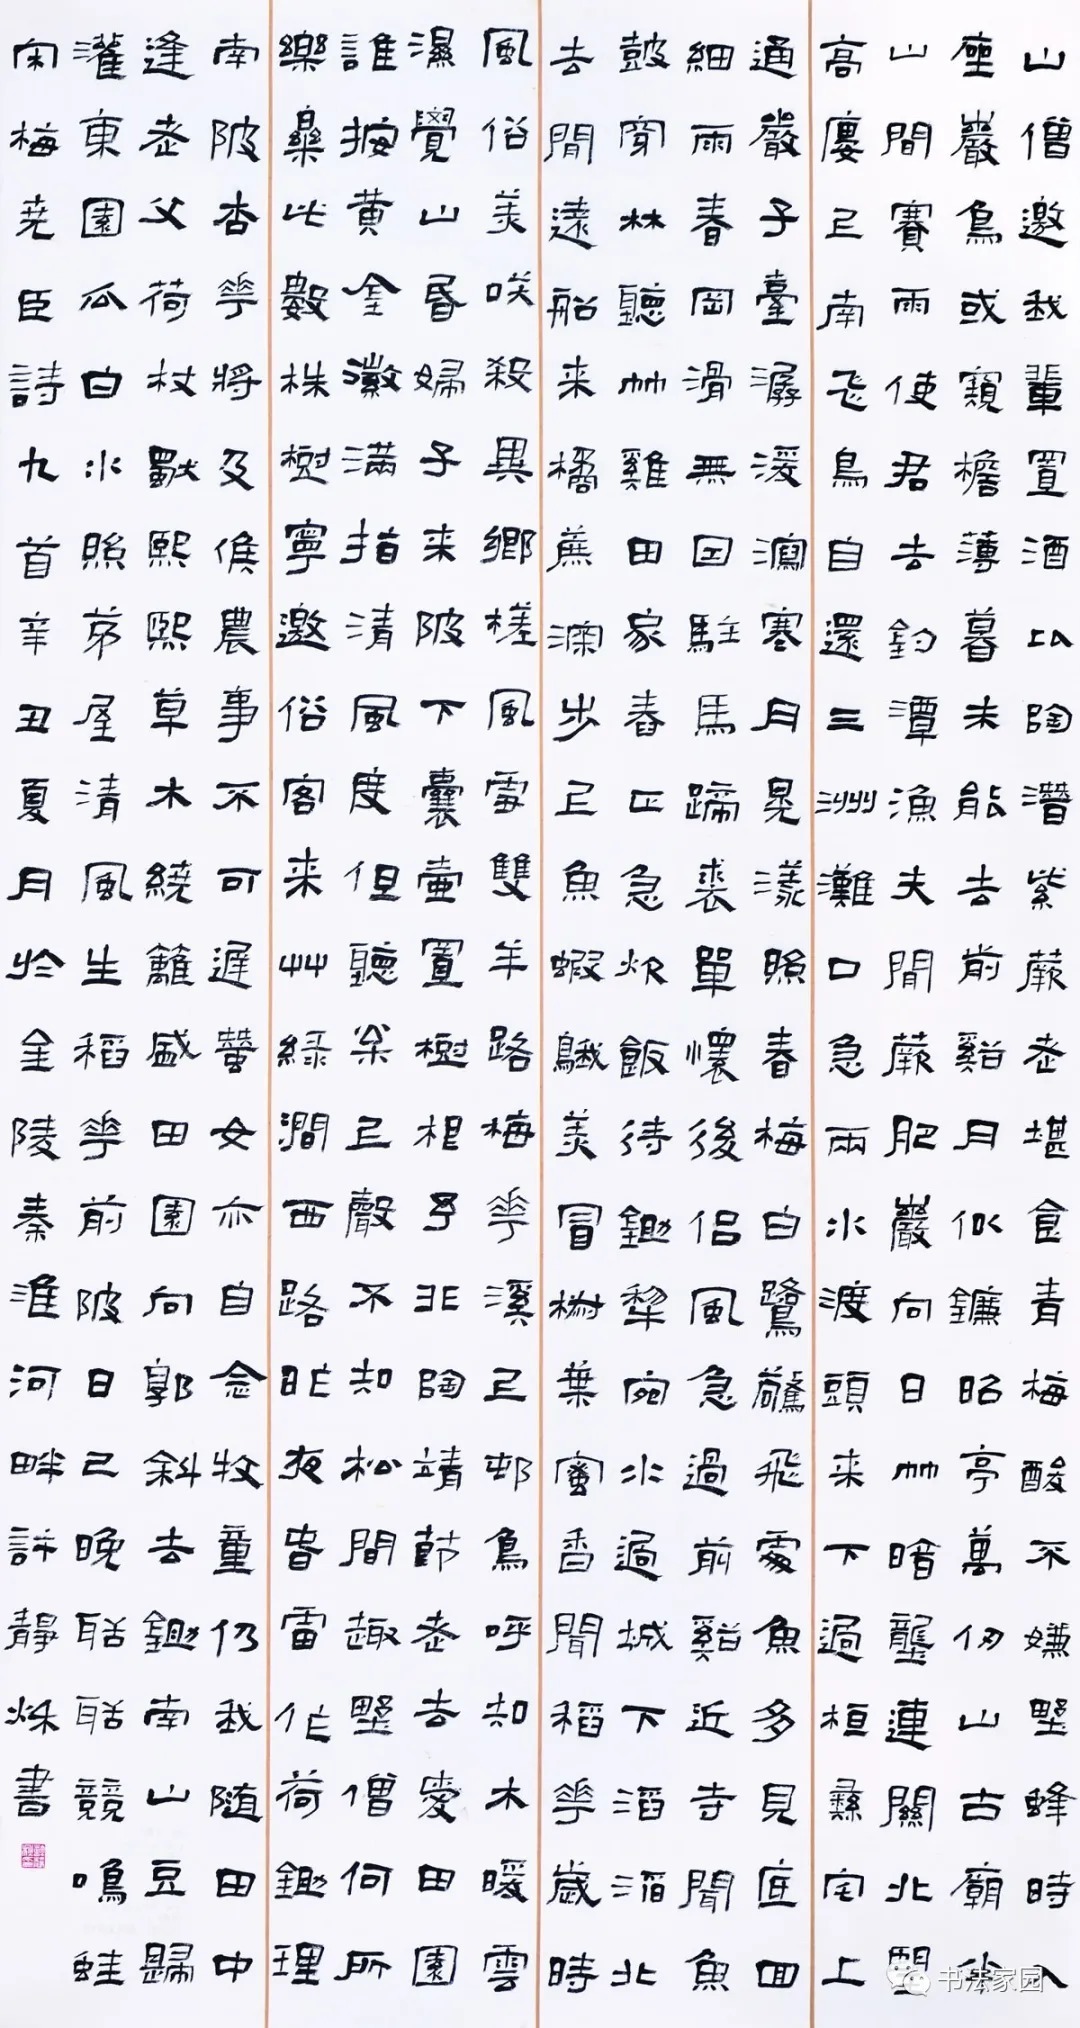 山僧邀我輩置酒以陶潛紫蕨老堪食青梅酸不嫌野蜂時入
座巖鳥或窺檐薄暮未能去前谿月似鐮昭亭萬仞山古廟半
山間賽雨使君去釣潭漁夫閒蕨肥巖向日竹暗壟連關北望
高廔上南飛鳥自還三洲灘口急兩水渡頭来下過桓彝宅上
通嚴子臺潺湲瀉寒月晃漾照春梅白鷺驚飛處魚多見底回
細雨春岡滑無因駐馬蹄裘單懷後侶風急過前谿近寺聞魚
鼓穿林聽竹雞田家舂正急炊飯待鋤犁宛水過城下滔滔北
去閒遠船来橘蔗深步上魚蝦鵝美冒樹葉蜜香聞稻花歲時
風俗美咲殺異鄉槎風雪雙羊路梅花溪上邨鳥呼知木暖雲
濕覺山昏婦子来陂下囊壺置樹根予非陶靖節老去愛田園
誰按黃金徽滿指清風度但聽絫上聲不知松間趣野僧何所
樂樂此數株樹寧邀俗客来艸綠澗西路昨夜春雷作荷鋤理
南陂杏花將及候農事不可遲蠶女亦自念牧童仍我随田中
逢老父荷杖獸熙熙草木繞籬盛田園向郭斜去鋤南山豆歸
灌東園瓜白水照茅屋清風生稻花前陂日已晚聒聒競鳴蛙
宋梅堯臣詩九首辛丑夏月於金陵秦淮河畔許靜秌書
书法家园